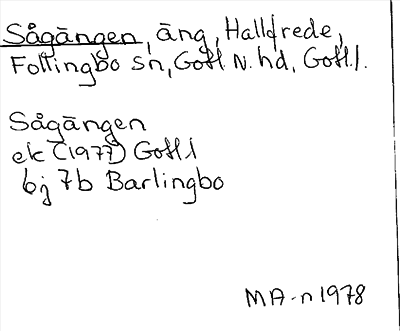 Sågängen, äng, Hallfrede,
Follingbo sn, Gotl. N. hd, Gotl.l.
Sågängen
ek (1977) Gotl.l
bj 7b Barlingbo
MA-n 1978